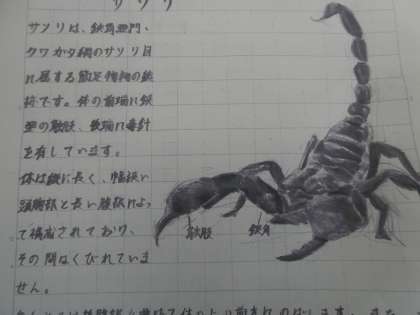 サソリ
サソリは、鋏角亜門、
クワガタ綱のサソリ目
に属する節足動物の総
称です。体の前端に鋏
型の触肢、後端に毒針
を有しています。
体は縦に長く、幅狭い
頭胸部と長い腹部によっ
て構成されており、
その間はくびれていま
せん。
触肢
鋏角